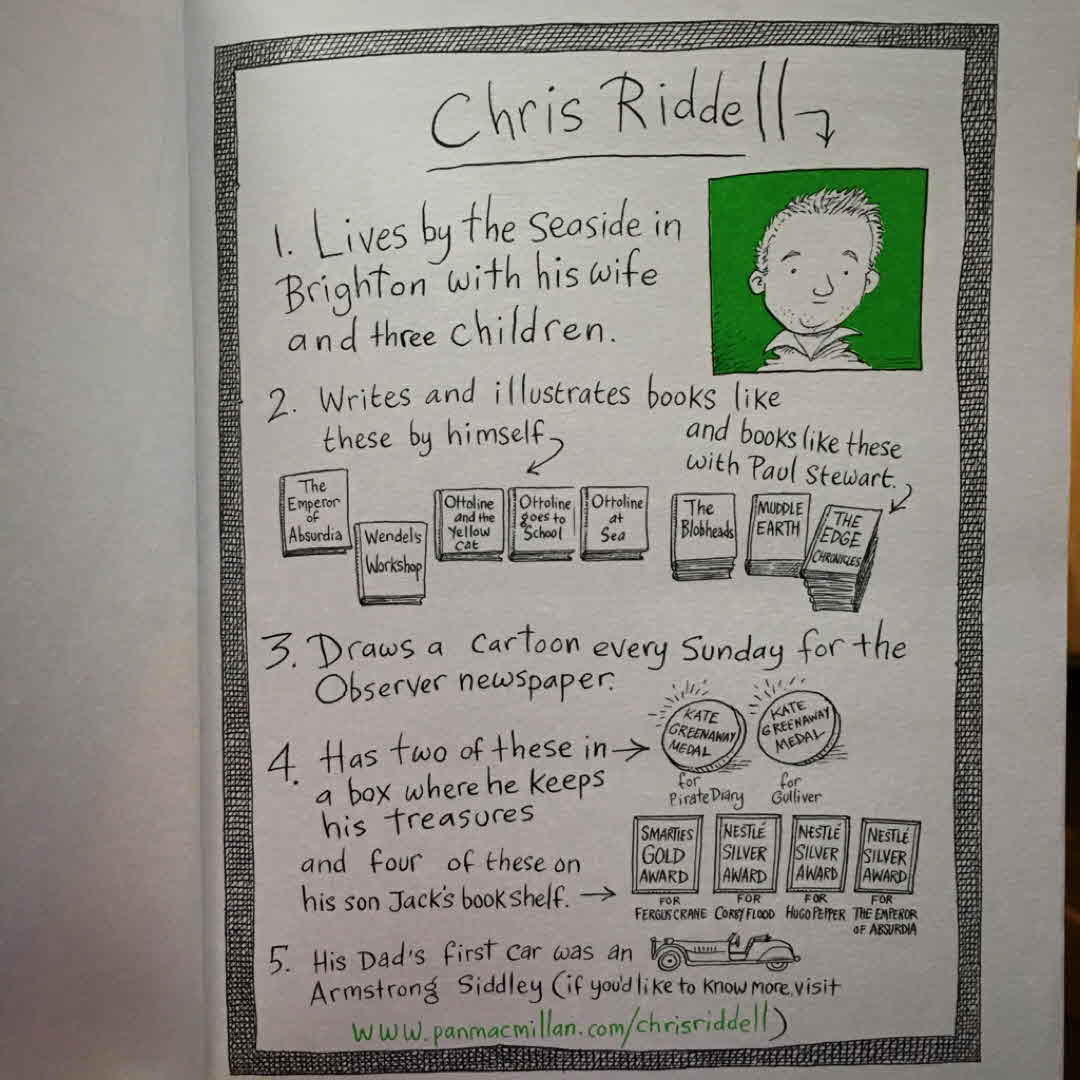 Chris Riddell
1. Lives by the seaside in
Brighton with his wife
and three children.
2. Writes and illustrates books like
these by himself
and books like these
with Paul Stewart.
The
Emperor
of
Absurdia
Wendel's
Workshop
Ottoline
and the
Yellow
Cat
Ottoline
goes to
School
Ottoline
at
Sea
The
Blobheads
MUDDLE
EARTH
THE
EDGE
CHRONICLES
3. Draws a cartoon every Sunday for the
Observer newspaper.
4. Has two of these in
a box where he keeps
his treasures
KATE
GREENAWAY
MEDAL
for
Pirate Diary
KATE
GREENAWAY
MEDAL
for
Gulliver
and four of these on
his son Jack's bookshelf.
SMARTIES
GOLD
AWARD
FOR
FERGUS CRANE
NESTLÉ
SILVER
AWARD
FOR
CORBY FLOOD
NESTLÉ
SILVER
AWARD
FOR
HUGO PEPPER
NESTLÉ
SILVER
AWARD
FOR
THE EMPEROR
OF ABSURDIA
5. His Dad's first car was an
Armstrong Siddley (if you'd like to know more, visit
www.panmacmillan.com/chrisriddell)